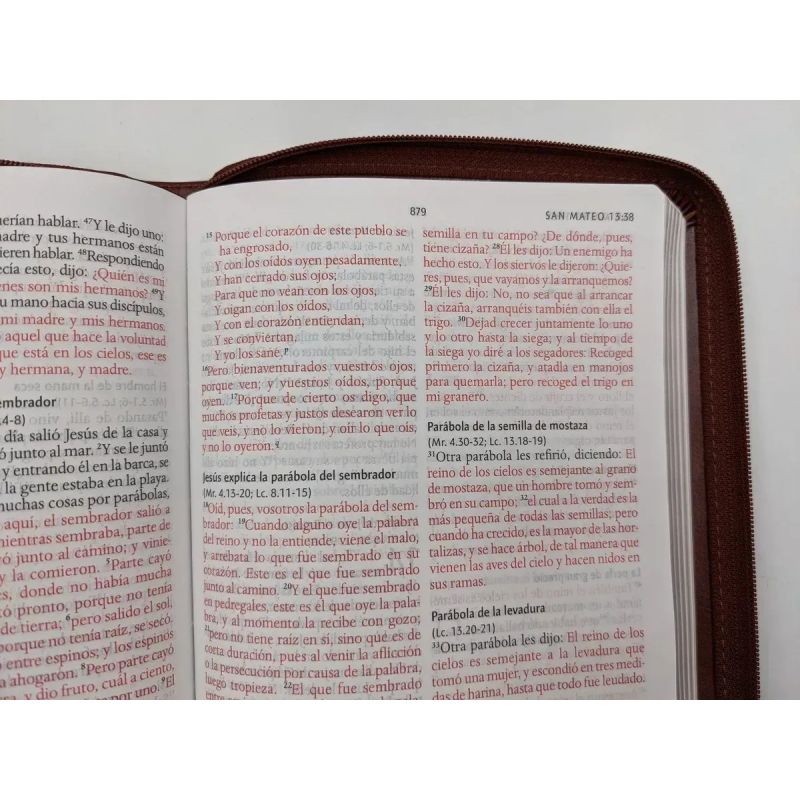 erían hablar. ⁴⁷Y le dijo uno:
adre y tus hermanos están
ieren hablar. ⁴⁸Respondiendo
ecía esto, dijo: ¿Quién es mi
enes son mis hermanos? ⁴⁹Y
u mano hacia sus discípulos,
mi madre y mis hermanos.
aquel que hace la voluntad
que está en los cielos, ese es
y hermana, y madre.
embrador
4-8)
día salió Jesús de la casa y
junto al mar. ²Y se le juntó
y entrando él en la barca, se
a la gente estaba en la playa.
muchas cosas por parábolas,
aquí, el sembrador salió a
mientras sembraba, parte de
yó junto al camino; y vinie-
y la comieron. ⁵Parte cayó
es, donde no había mucha
tó pronto, porque no tenía
de tierra; ⁶pero salido el sol,
porque no tenía raíz, se secó.
ó entre espinos; y los espinos
a ahogaron. ⁸Pero parte cayó
a, y dio fruto, cuál a ciento,
por uno. ⁹El
879
SAN MATEO 13:38
¹⁵Porque el corazón de este pueblo se
ha engrosado,
Y con los oídos oyen pesadamente,
Y han cerrado sus ojos;
Para que no vean con los ojos,
Y oigan con los oídos,
Y con el corazón entiendan,
Y se conviertan,
Y yo los sane.ᵖ
¹⁶Pero bienaventurados vuestros ojos,
porque ven; y vuestros oídos, porque
oyen. ¹⁷Porque de cierto os digo, que
muchos profetas y justos desearon ver lo
que veis, y no lo vieron; y oír lo que oís,
y no lo oyeron.ᑫ
Jesús explica la parábola del sembrador
(Mr. 4.13-20; Lc. 8.11-15)
¹⁸Oíd, pues, vosotros la parábola del sem-
brador: ¹⁹Cuando alguno oye la palabra
del reino y no la entiende, viene el malo,
y arrebata lo que fue sembrado en su
corazón. Este es el que fue sembrado
junto al camino. ²⁰Y el que fue sembrado
en pedregales, este es el que oye la pala-
bra, y al momento la recibe con gozo;
²¹pero no tiene raíz en sí, sino que es de
corta duración, pues al venir la aflicción
o la persecución por causa de la palabra,
luego tropieza. ²²El que fue sembrado
semilla en tu campo? ¿De dónde, pues,
tiene cizaña? ²⁸Él les dijo: Un enemigo ha
hecho esto. Y los siervos le dijeron: ¿Quie-
res, pues, que vayamos y la arranquemos?
²⁹Él les dijo: No, no sea que al arrancar
la cizaña, arranquéis también con ella el
trigo. ³⁰Dejad crecer juntamente lo uno
y lo otro hasta la siega; y al tiempo de
la siega yo diré a los segadores: Recoged
primero la cizaña, y atadla en manojos
para quemarla; pero recoged el trigo en
mi granero.
Parábola de la semilla de mostaza
(Mr. 4.30-32; Lc. 13.18-19)
³¹Otra parábola les refirió, diciendo: El
reino de los cielos es semejante al grano
de mostaza, que un hombre tomó y sem-
bró en su campo; ³²el cual a la verdad es la
más pequeña de todas las semillas; pero
cuando ha crecido, es la mayor de las hor-
talizas, y se hace árbol, de tal manera que
vienen las aves del cielo y hacen nidos en
sus ramas.
Parábola de la levadura
(Lc. 13.20-21)
³³Otra parábola les dijo: El reino de los
cielos es semejante a la levadura que
tomó una mujer, y escondió en tres medi-
das de harina, hasta que todo fue leudado.